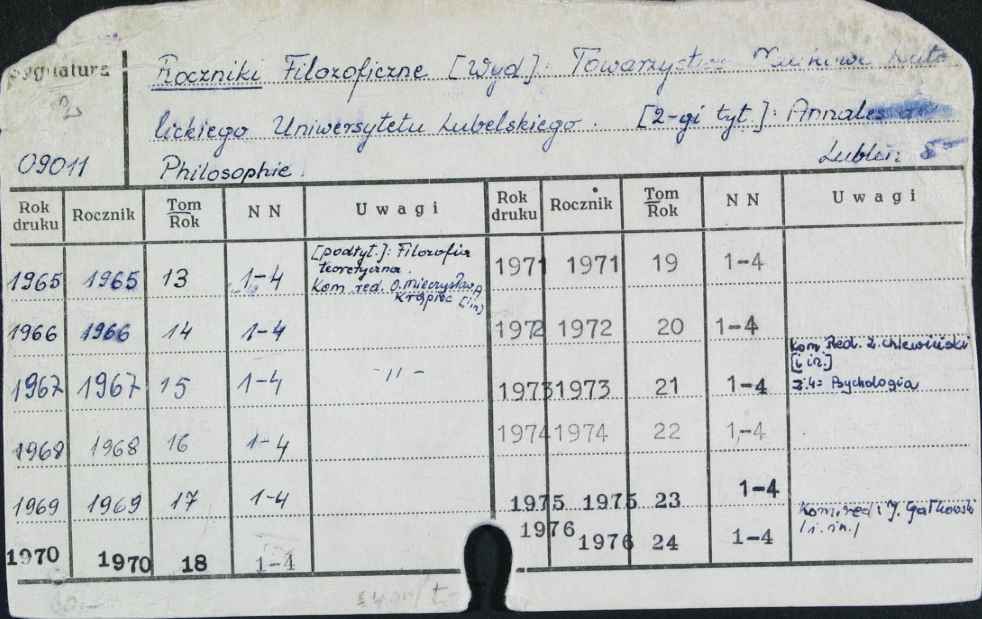 Sygnatura
09011
Roczniki Filozoficzne [Wyd]: Towarzystwo Naukowe Kato-
lickiego Uniwersytetu Lubelskiego. [2-gi tyt.]: Annales de
Philosophie. Lublin
Rok druku Rocznik Tom Rok NN Uwagi Rok druku Rocznik Tom Rok NN Uwagi
1965 1965 13 1-4 [podtyt.]: Filozofia teoretyczna. Kom red. O. Mieczysław A Krąpiec [i in] 1971 1971 19 1-4
1966 1966 14 1-4 1972 1972 20 1-4
1967 1967 15 1-4 -"- 1973 1973 21 1-4 Kom Red. Z. Chlewiński [i in.] z.4: Psychologia
1968 1968 16 1-4 1974 1974 22 1-4
1969 1969 17 1-4 1975 1975 23 1-4
1970 1970 18 1-4 1976 1976 24 1-4 Kom. red: J. Gałkowski /i. in./